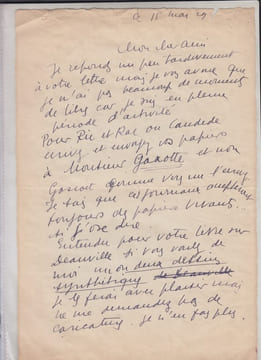 ce 18 mai 29
Mon cher ami
Je reponds un peu tardivement
à votre lettre mais je vous avoue que
je n'ai pas beaucoup de moments
de libre car je suis en pleine
période d'activité
Pour Ric et Rac ou Candide
envoyez vos papiers
à Monsieur Gaxotte et non
Gascoit comme vous me l'
Je sais que ces journaux
toujours des papiers vivants
si j'ose dire.
Entendu pour votre lettre sur
Deauville si vous voulez de
moi un ou deux dessins
synthétique de Deauville
je le ferai avec plaisir mais
ne me demandez pas de
caricature. je n'en fais plus.